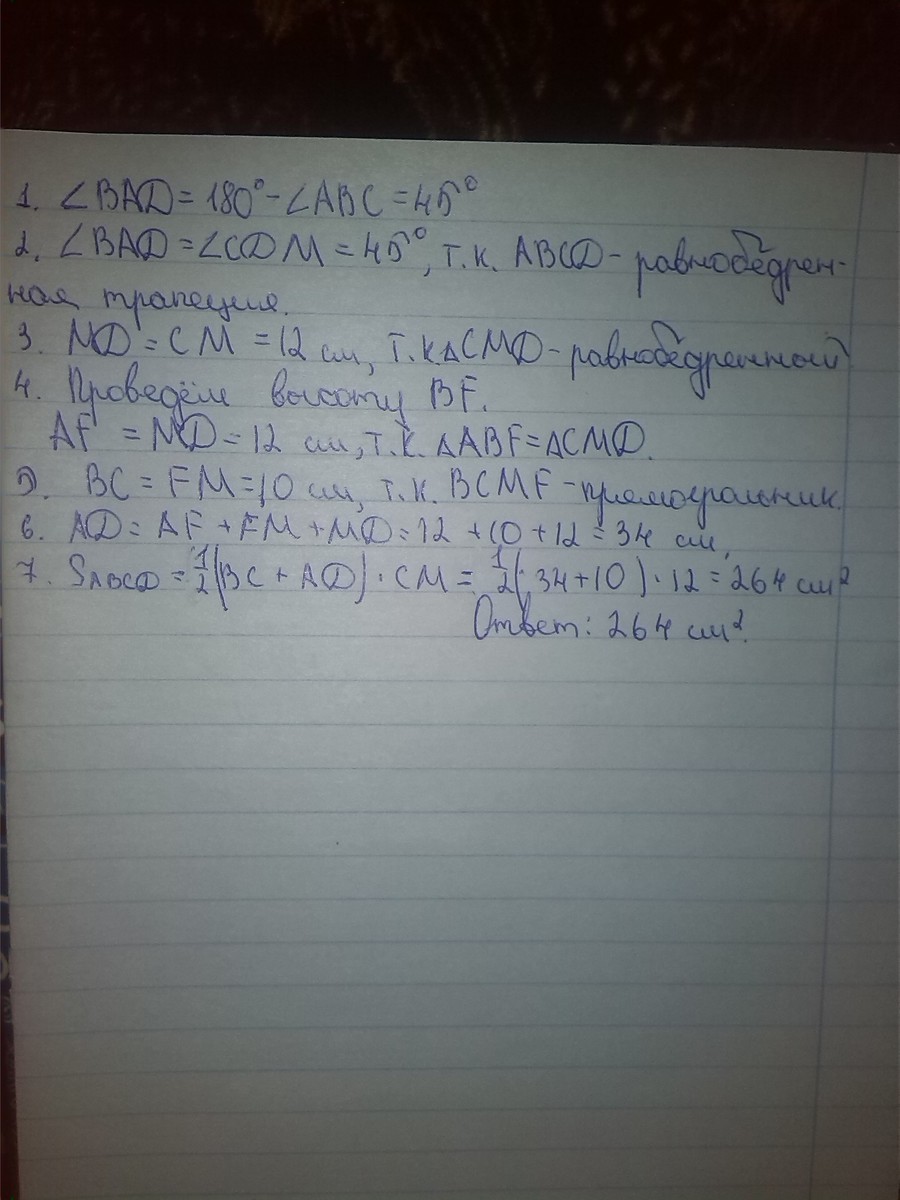 1. ∠BAD = 180° - ∠ABC = 45°
2. ∠BAD = ∠CDM = 45°, т.к. ABCD - равнобедрен-
ная трапеция.
3. MD = CM = 12 см, т.к △CMD - равнобедренный
4. Проведём высоту BF.
AF = MD = 12 см, т.к. △ABF = △CMD.
5. BC = FM = 10 см, т.к. BCMF - прямоугольник.
6. AD = AF + FM + MD = 12 + 10 + 12 = 34 см,
7. SABCD = 1/2 (BC + AD) · CM = 1/2 (34 + 10) · 12 = 264 см²
Ответ: 264 см².